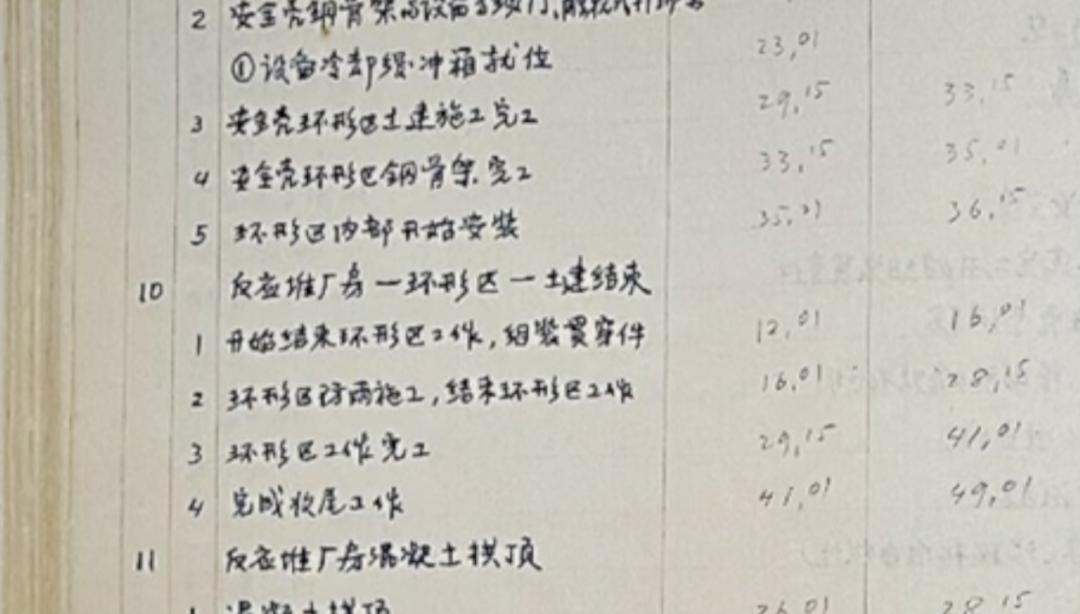 2 安全壳钢骨架的设备
①设备冷却缓冲箱就位 23,01
3 安全壳环形区土建施工完工 29,15 33,15
4 安全壳环形区钢骨架完工 33,15 35,01
5 环形区内部开始安装 35,01 36,15
10 反应堆厂房—环形区—土建结束
1 开始结束环形区工作,组装贯穿件 12,01 16,01
2 环形区防雨施工,结束环形区工作 16,01 28,15
3 环形区工作完工 29,15 41,01
4 完成收尾工作 41,01 49,01
11 反应堆厂房混凝土拱顶
1 混凝土拱顶 26,01 28,15